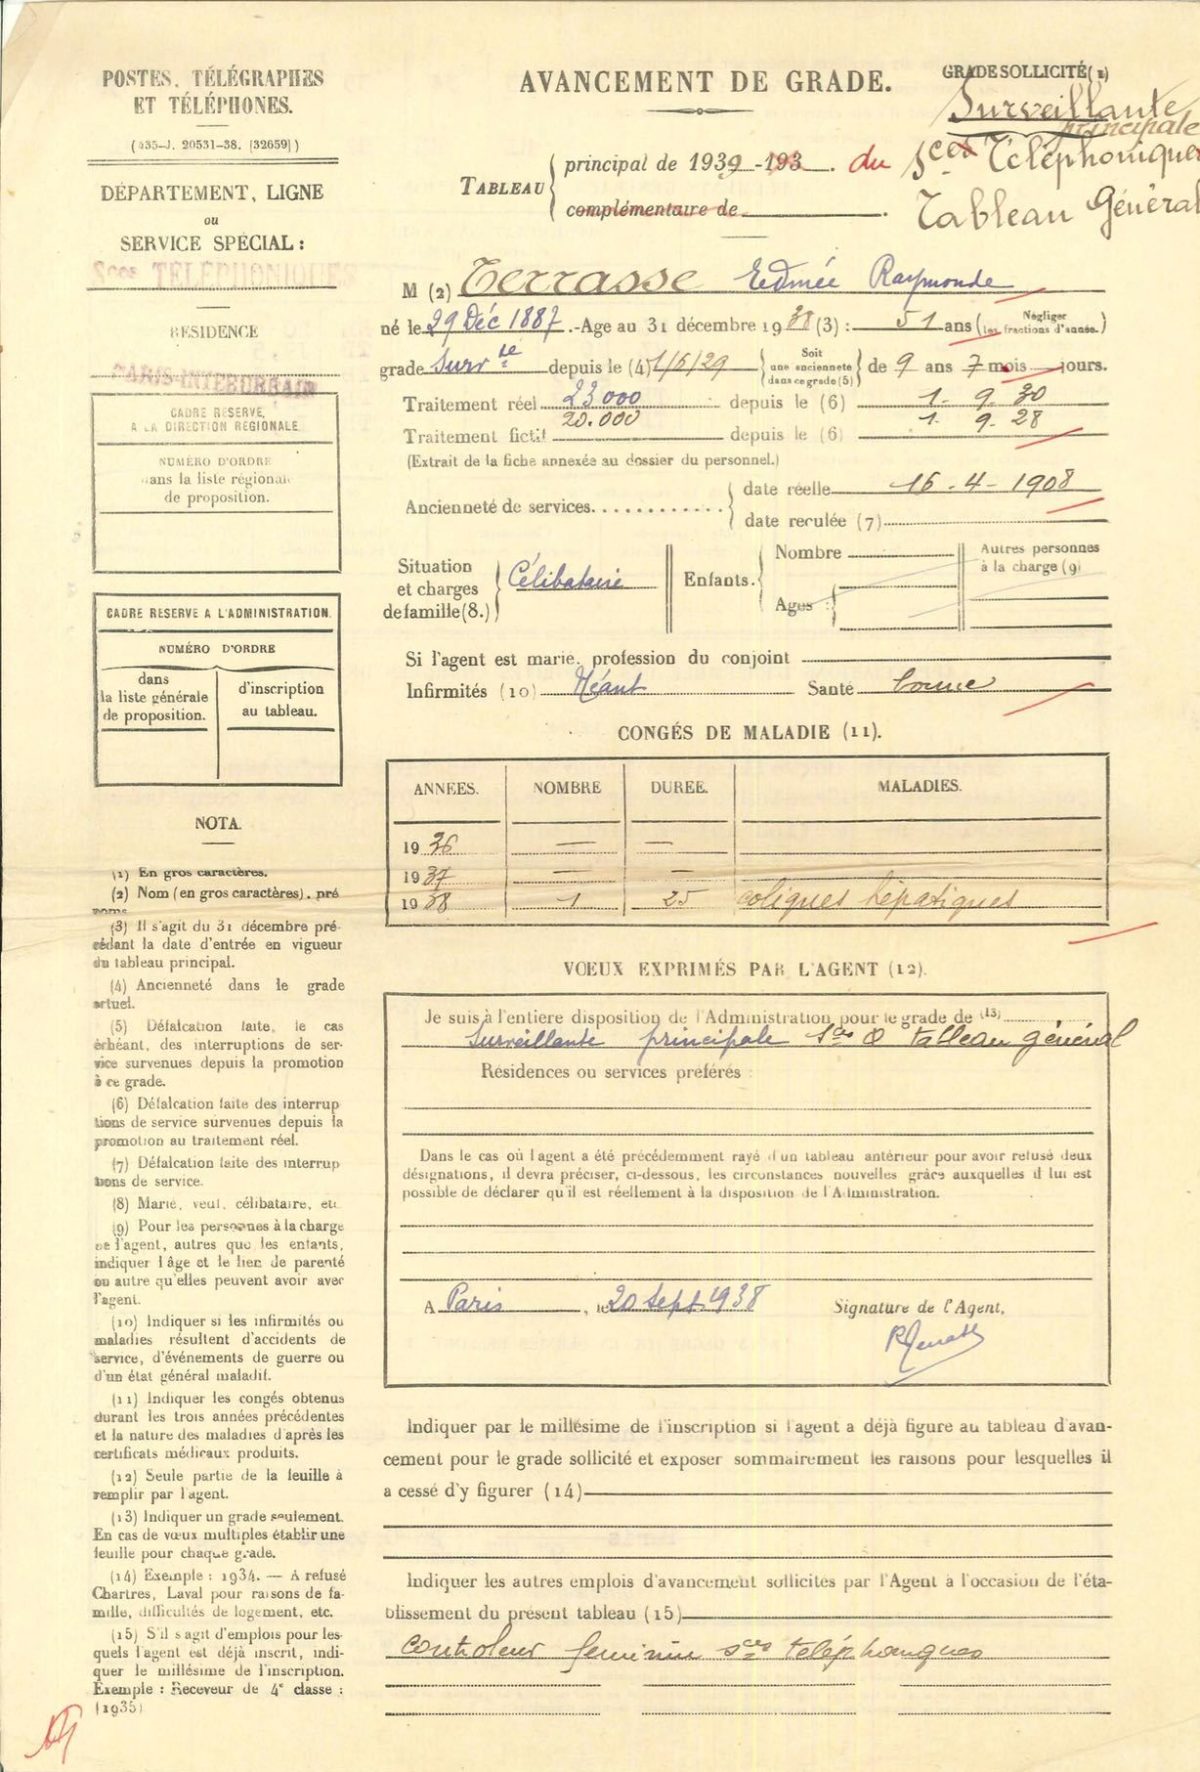 POSTES, TÉLÉGRAPHES
ET TÉLÉPHONES.
(435-J. 20531-38. [32659])
DÉPARTEMENT, LIGNE
ou
SERVICE SPÉCIAL :
Sces TÉLÉPHONIQUES
RÉSIDENCE
PARIS-INTERURBAIN
CADRE RÉSERVÉ,
A LA DIRECTION RÉGIONALE
NUMÉRO D'ORDRE
dans la liste régionale
de proposition.
CADRE RÉSERVÉ A L'ADMINISTRATION.
NUMÉRO D'ORDRE
dans
la liste générale
de proposition.
d'inscription
au tableau.
NOTA.
(1) En gros caractères.
(2) Nom (en gros caractères), pré
noms
(3) Il s'agit du 31 décembre pré-
cédant la date d'entrée en vigueur
du tableau principal.
(4) Ancienneté dans le grade
actuel.
(5) Défalcation faite, le cas
échéant, des interruptions de ser-
vice survenues depuis la promotion
à ce grade.
(6) Défalcation faite des interrup
tions de service survenues depuis la
promotion au traitement réel.
(7) Défalcation faite des interrup
tions de service.
(8) Marié, veuf, célibataire, etc
(9) Pour les personnes à la charge
de l'agent, autres que les enfants,
indiquer l'âge et le lien de parenté
ou autre qu'elles peuvent avoir avec
l'agent.
(10) Indiquer si les infirmités ou
maladies résultent d'accidents de
service, d'événements de guerre ou
d'un état général maladif.
(11) Indiquer les congés obtenus
durant les trois années précédentes
et la nature des maladies d'après les
certificats médicaux produits.
(12) Seule partie de la feuille à
remplir par l'agent.
(13) Indiquer un grade seulement.
En cas de vœux multiples établir une
feuille pour chaque grade.
(14) Exemple : 1934. — A refusé
Chartres, Laval pour raisons de fa-
mille, difficultés de logement, etc.
(15) S'il s'agit d'emplois pour les-
quels l'agent est déjà inscrit, indi-
quer le millésime de l'inscription.
Exemple : Receveur de 4e classe :
(1935)
AVANCEMENT DE GRADE.
GRADE SOLLICITÉ (1)
Surveillante
principale
du Sces Téléphoniques
Tableau Général
TABLEAU
principal de 1939-193 .
complémentaire de .
M (2) Terrasse Edmée Raymonde
né le 29 Déc 1887 .-Age au 31 décembre 1938 (3) : 51 ans (Négliger les fractions d'année.)
grade Surv te depuis le (4) 1/6/29 {Soit une ancienneté dans ce grade (5)} de 9 ans 7 mois jours.
Traitement réel 23 000 depuis le (6) 1. 9. 30
Traitement fictif 20.000 depuis le (6) 1. 9. 28
(Extrait de la fiche annexée au dossier du personnel.)
Ancienneté de services............
date réelle 16-4-1908
date reculée (7)
Situation
et charges
de famille (8.)
Célibataire
Enfants.
Nombre
Ages :
Autres personnes
à la charge (9)
Si l'agent est marié, profession du conjoint
Infirmités (10) Néant Santé bonne
CONGÉS DE MALADIE (11).
ANNEES. NOMBRE DUREE. MALADIES.
1936 — —
1937 — —
1938 1 25 coliques hépatiques
VŒUX EXPRIMÉS PAR L'AGENT (12).
Je suis à l'entière disposition de l'Administration pour le grade de (13)
Surveillante principale tableau général
Résidences ou services préférés :
Dans le cas où l'agent a été précédemment rayé d'un tableau antérieur pour avoir refusé deux
désignations, il devra préciser, ci-dessous, les circonstances nouvelles grâce auxquelles il lui est
possible de déclarer qu'il est réellement à la disposition de l'Administration.
A Paris , le 20 Sept 1938 Signature de l'Agent,
Indiquer par le millésime de l'inscription si l'agent a déjà figuré au tableau d'avan-
cement pour le grade sollicité et exposer sommairement les raisons pour lesquelles il
a cessé d'y figurer (14)
Indiquer les autres emplois d'avancement sollicités par l'Agent à l'occasion de l'éta-
blissement du présent tableau (15)
Controleur féminin sces téléphoniques